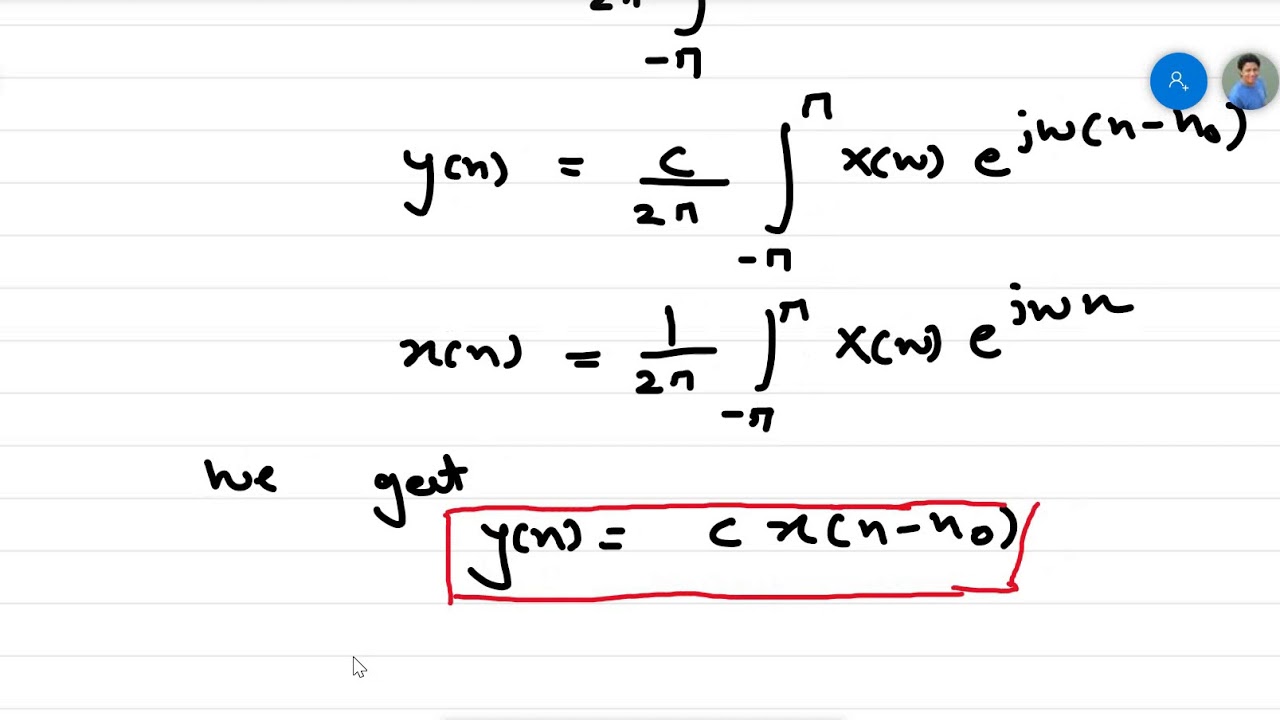 2π ∫
-π
y(n) = c/2π ∫_{-π}^{π} x(w) e^{jw(n-n₀)}
x(n) = 1/2π ∫_{-π}^{π} X(w) e^{jwn}
we get
y(n) = c x(n-n₀)